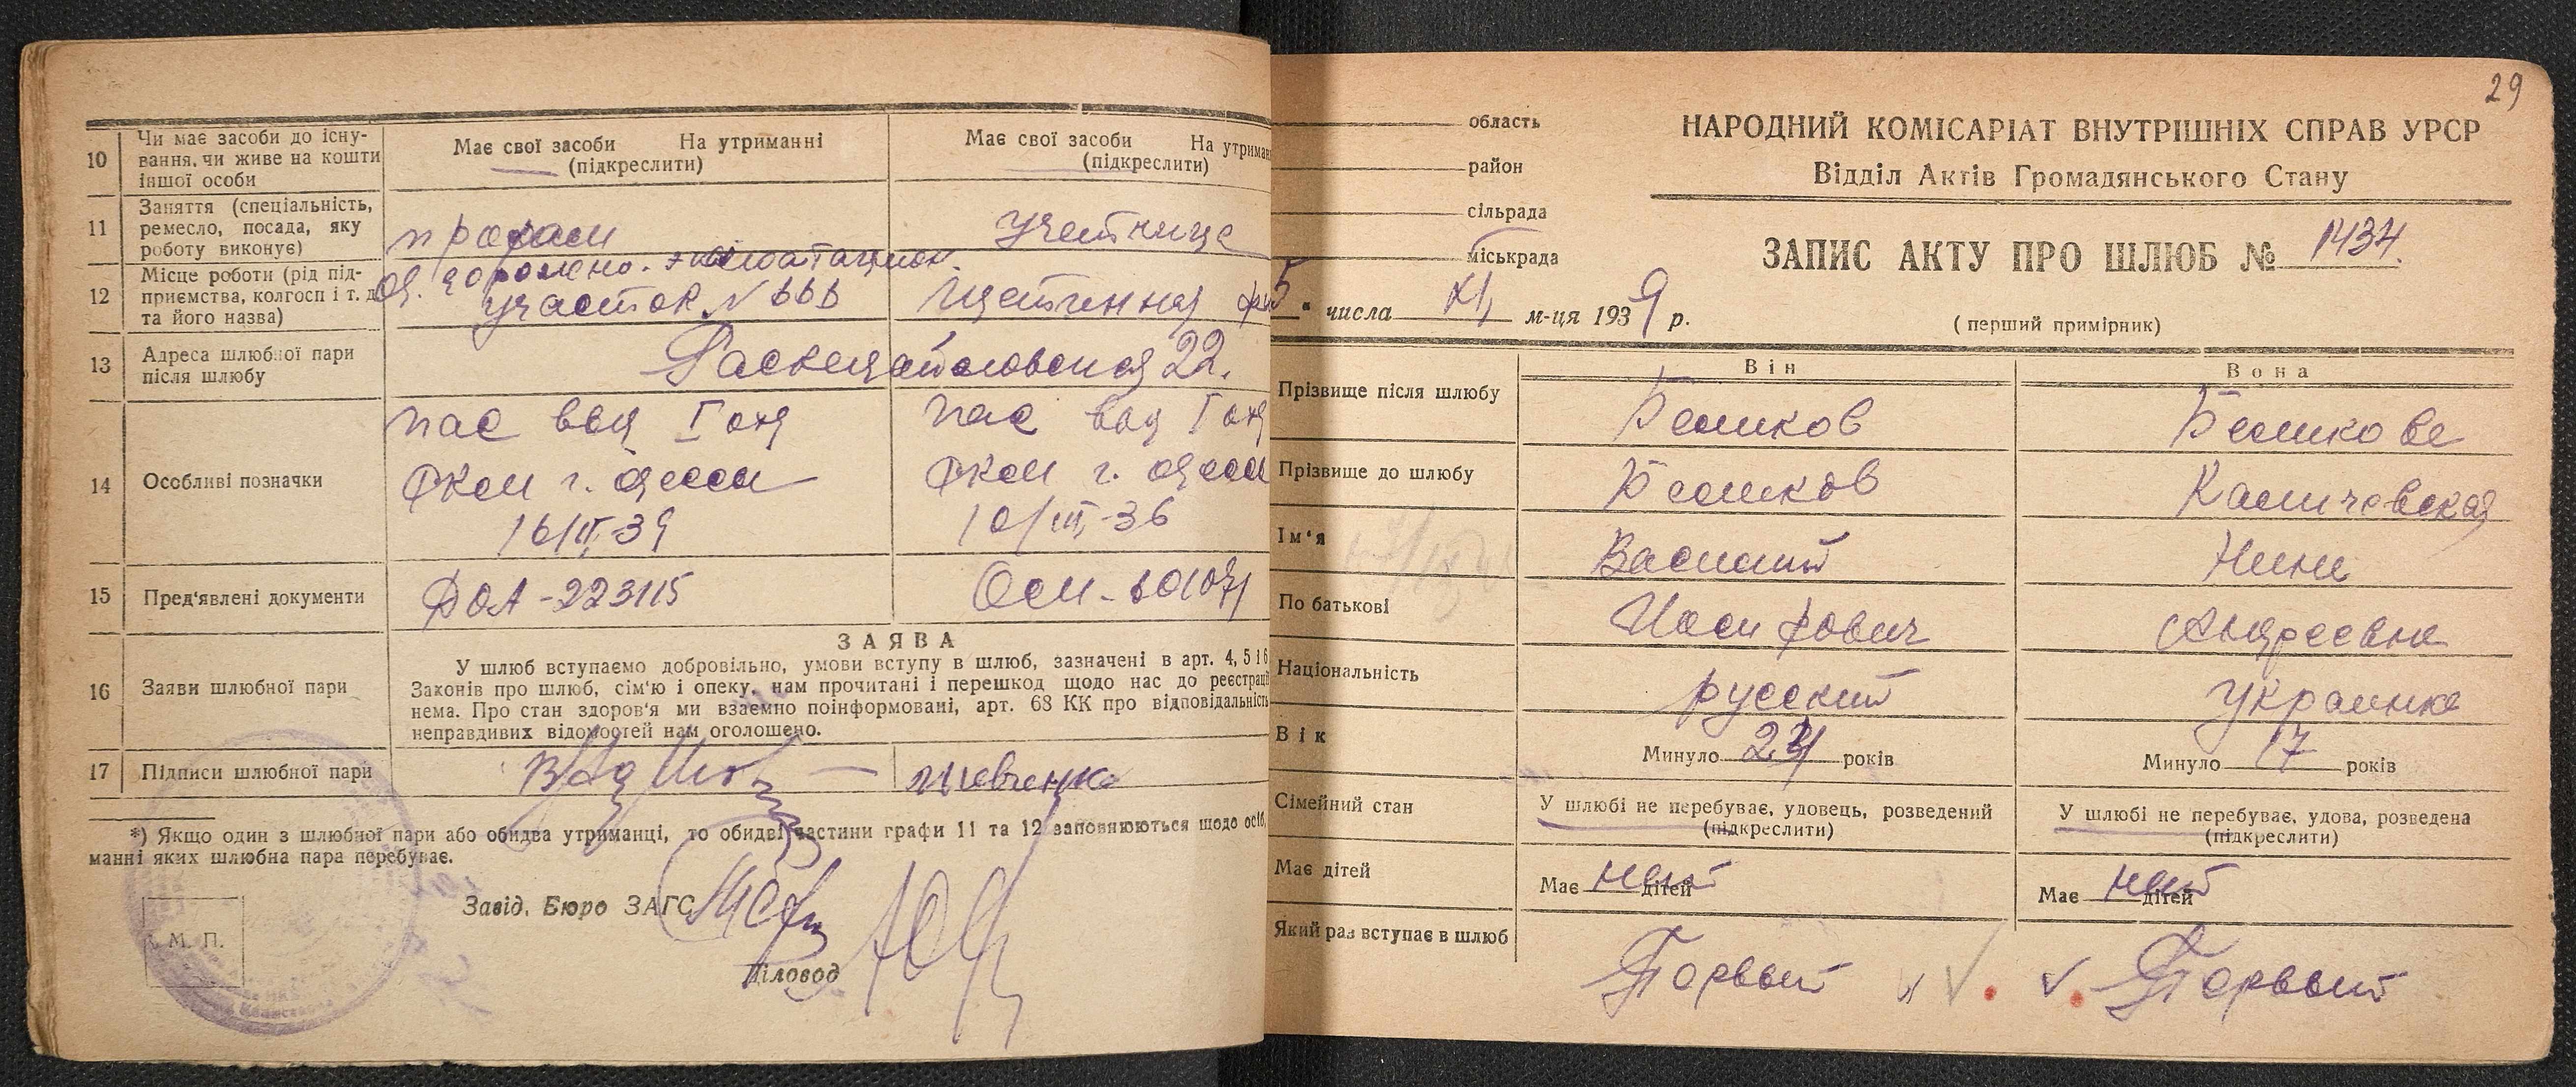 10 Чи має засоби до існу-
вання, чи живе на кошти
іншої особи
Має свої засоби На утриманні
(підкреслити)
Має свої засоби На утриман
(підкреслити)
11 Заняття (спеціальність,
ремесло, посада, яку
роботу виконує)
прораб
12 Місце роботи (рід під-
приємства, колгосп і т. д.
та його назва)
Од. дорожно. эксплоатацион.
участок №
Щетинная
13 Адреса шлюбної пари
після шлюбу
22.
14 Особливі позначки
пас выд I отд
РКМ г. Одессы
16/II-39
пас выд I отд
РКМ г. Одессы
10/III-36
15 Пред'явлені документи
ДОА-223115
16 Заяви шлюбної пари
ЗАЯВА
У шлюб вступаємо добровільно, умови вступу в шлюб, зазначені в арт. 4, 5 і 6
Законів про шлюб, сім'ю і опеку, нам прочитані і перешкод щодо нас до реєстрації
нема. Про стан здоров'я ми взаємно поінформовані, арт. 68 КК про відповідальність
неправдивих відомостей нам оголошено.
17 Підписи шлюбної пари
Шевченко
*) Якщо один з шлюбної пари або обидва утриманці, то обидві частини графи 11 та 12 заповнюються щодо осіб,
манні яких шлюбна пара перебуває.
Завід. Бюро ЗАГС
М. П.
Діловод
29
область
район
сільрада
міськрада
НАРОДНИЙ КОМІСАРІАТ ВНУТРІШНІХ СПРАВ УРСР
Відділ Актів Громадянського Стану
ЗАПИС АКТУ ПРО ШЛЮБ № 1434.
5 " числа XI м-ця 1939 р.
(перший примірник)
Він Вона
Прізвище після шлюбу Беликов Беликова
Прізвище до шлюбу Беликов
Ім'я Василий Нина
По батькові Иосифович Андреевна
Національність русский украинка
Вік Минуло років Минуло 17 років
Сімейний стан
У шлюбі не перебуває, удовець, розведений
(підкреслити)
У шлюбі не перебуває, удова, розведена
(підкреслити)
Має дітей Має нет дітей Має нет дітей
Який раз вступає в шлюб Первый Первый